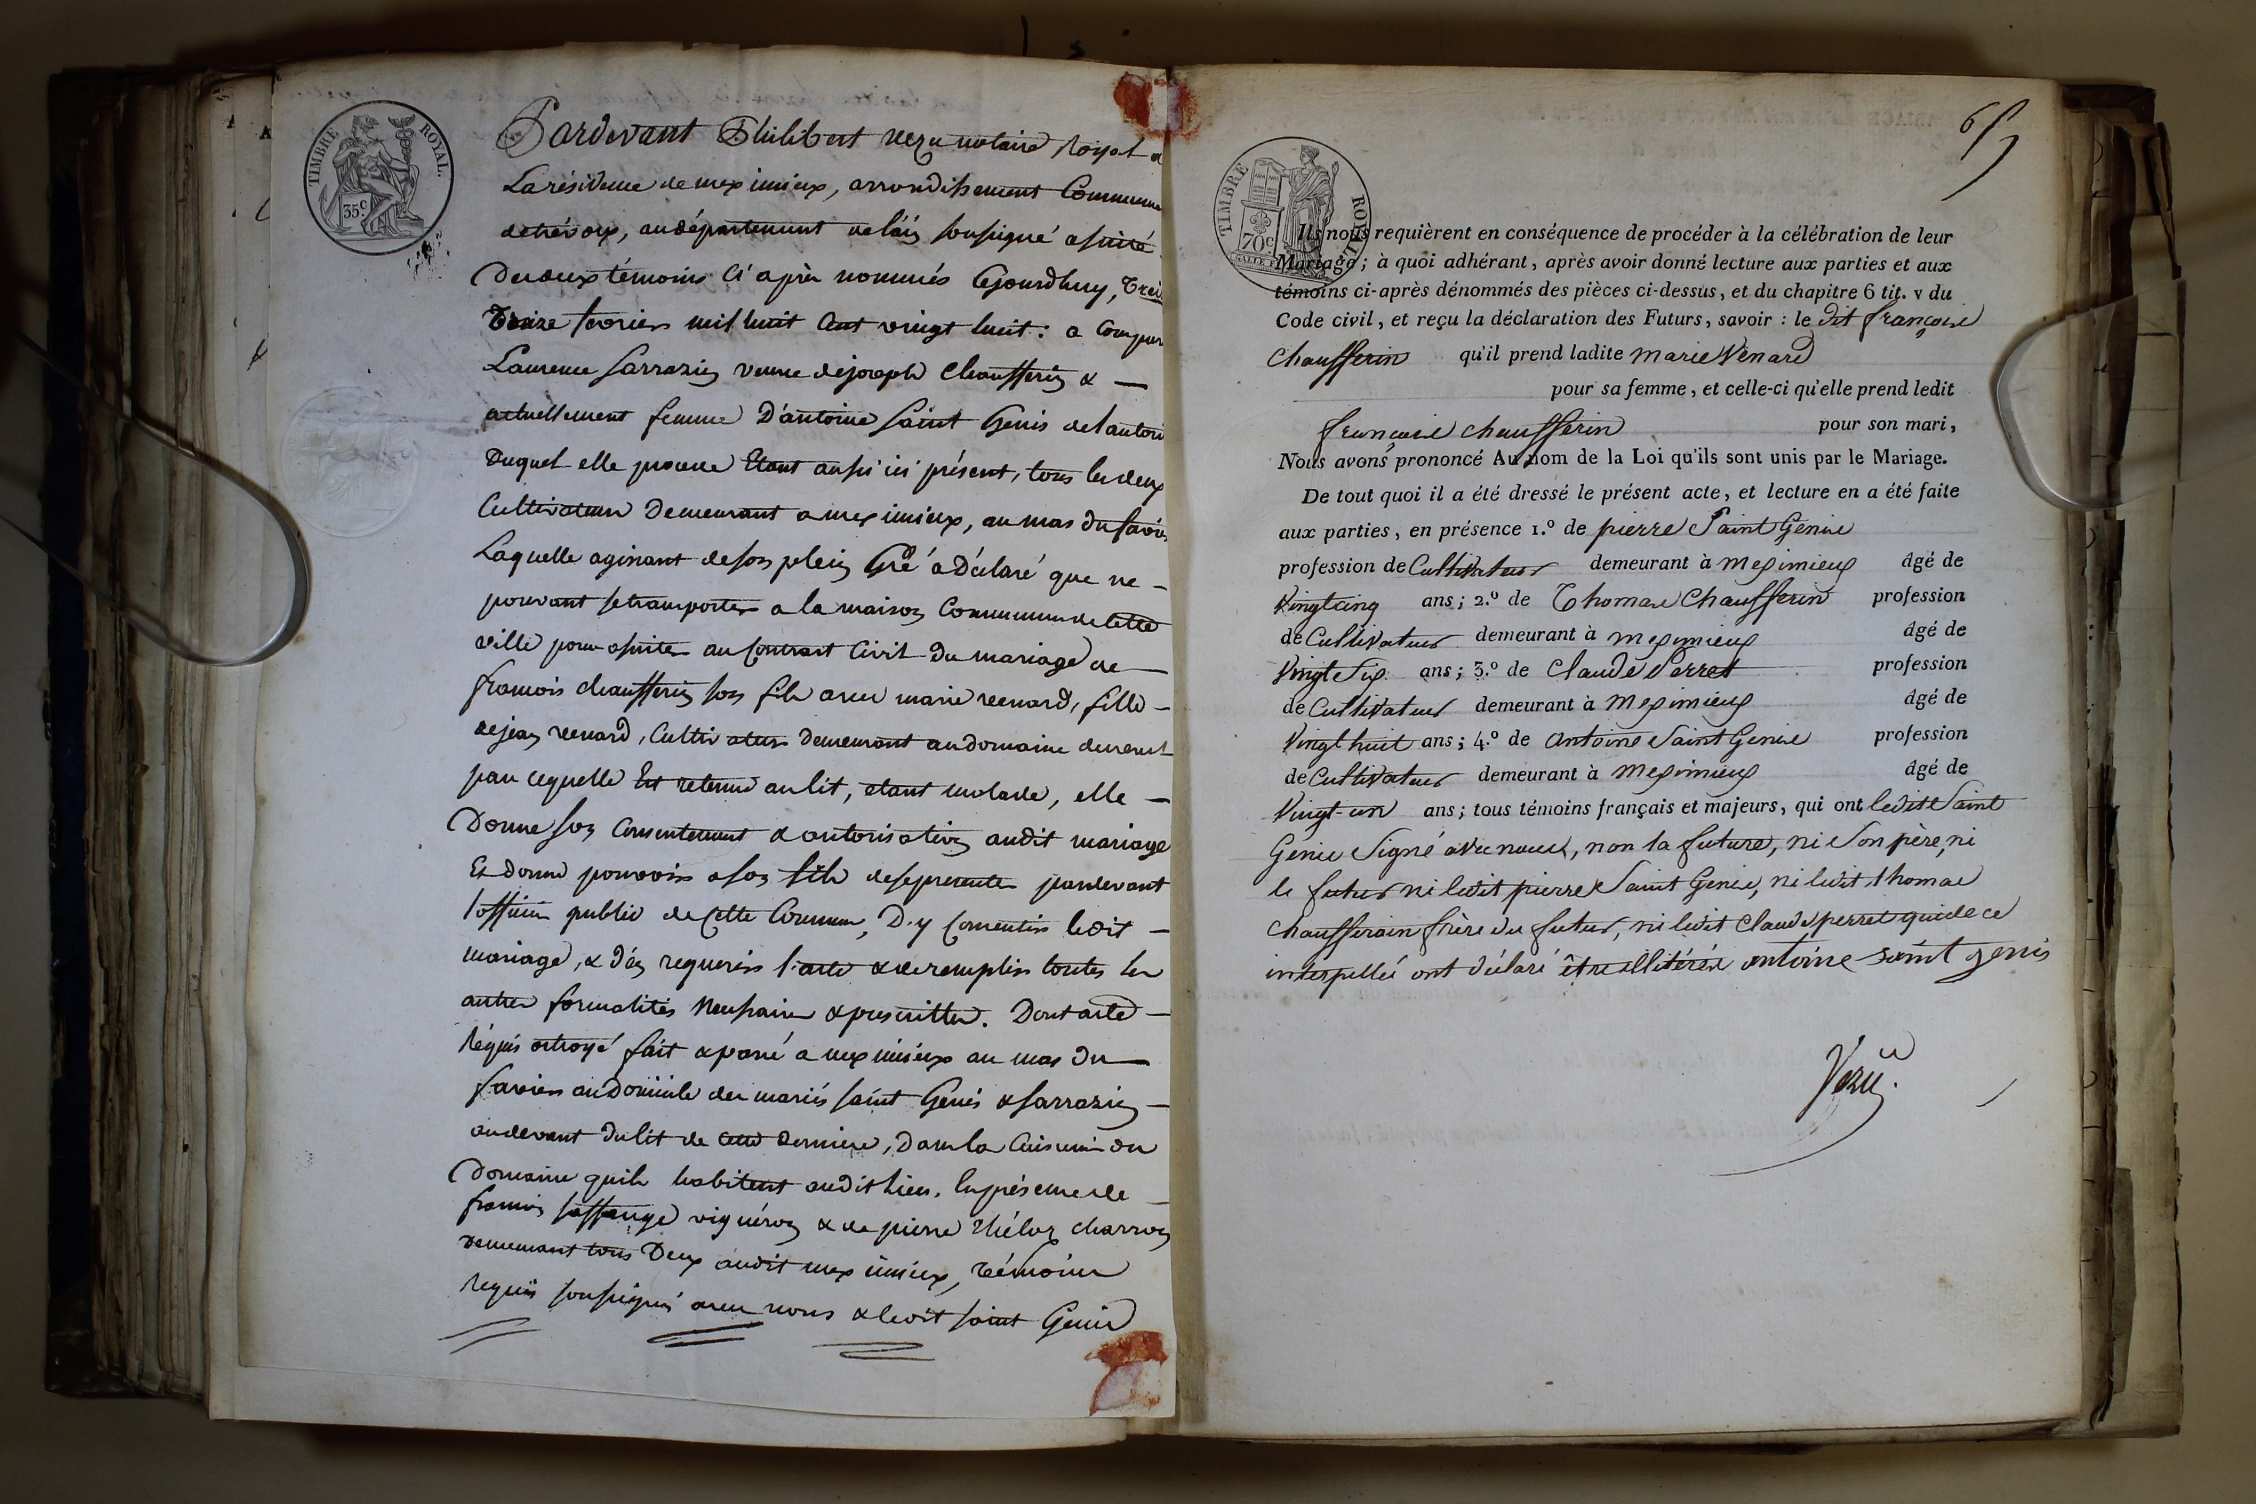 TIMBRE ROYAL.
35.c
Pardevant Philibert vezu notaire Royal a
La résidence de meximieux, arrondissement Commun
de trévoux, au département de l'ain soussigné assisté
Des deux témoins ci après nommés Cejourdhuy,
treize fevrier mil huit Cent vingt huit : a Compar
Laurence Sarrazin veuve de joseph Chaufferin &
actuellement femme D'antoine Saint Genis de l'autori
Duquel elle procede Etant aussi ici présent, tous les deux
Cultivateurs Demeurant a meximieux, au mas du
Laquelle agissant de son plein Gré a Déclaré que ne
pouvant se transporter a la maison Commune de Cette
ville pour assister au Contract Civil Du mariage de
françois chaufferin son fils avec marie venard, fille
de jean venard, Cultivateur Demeurant au domaine
par cequelle Est retenue au lit, etant malade, elle
Donne son Consentement & autorisation audit mariage
Et donne pouvoir a son fils de se presenter pardevant
l'officier public de Cette Commune, D'y Consentir ledit
mariage, & d'en requerir l'acte & de remplir toutes les
autres formalités Necessaires & prescrittes. Dont acte
Réquis octroyé fait & passé a meximieux au mas du
au Domicile des mariés saint Genis & Sarrazin
au devant Du lit de Cette derniere, Dans la Cuisine du
Domaine quils habitent audit lieu. En présence de
françois vigneron & de pierre charron
demeurant tous Deux audit meximieux, témoins
Requis soussignés avec nous & ledit saint Genis
65
TIMBRE ROYAL
70c
Ils nous requièrent en conséquence de procéder à la célébration de leur
Mariage ; à quoi adhérant, après avoir donné lecture aux parties et aux
témoins ci-après dénommés des pièces ci-dessus, et du chapitre 6 tit. v du
Code civil, et reçu la déclaration des Futurs, savoir : le dit françois
chaufferin qu'il prend ladite marie Venard
pour sa femme, et celle-ci qu'elle prend ledit
françois chaufferin pour son mari,
Nous avons prononcé Au nom de la Loi qu'ils sont unis par le Mariage.
De tout quoi il a été dressé le présent acte, et lecture en a été faite
aux parties, en présence 1.º de pierre Saint Genis
profession de Cultivateur demeurant à meximieux âgé de
Vingt cinq ans ; 2.º de Thomas Chaufferin profession
de Cultivateur demeurant à meximieux âgé de
Vingt Six ans ; 3.º de Claude Perret profession
de Cultivateur demeurant à Meximieux âgé de
Vingt huit ans ; 4.º de antoine Saint Genis profession
de Cultivateur demeurant à Meximieux âgé de
Vingt-un ans ; tous témoins français et majeurs, qui ont ledit Saint
Genis Signé avec nous, non la future, ni Son père, ni
le futur ni ledit pierre Saint Genis, ni ledit thomas
Chaufferain frère du futur, ni ledit Claude perret qui de ce
interpellés ont déclaré être illitérés antoine saint genis
Vezu